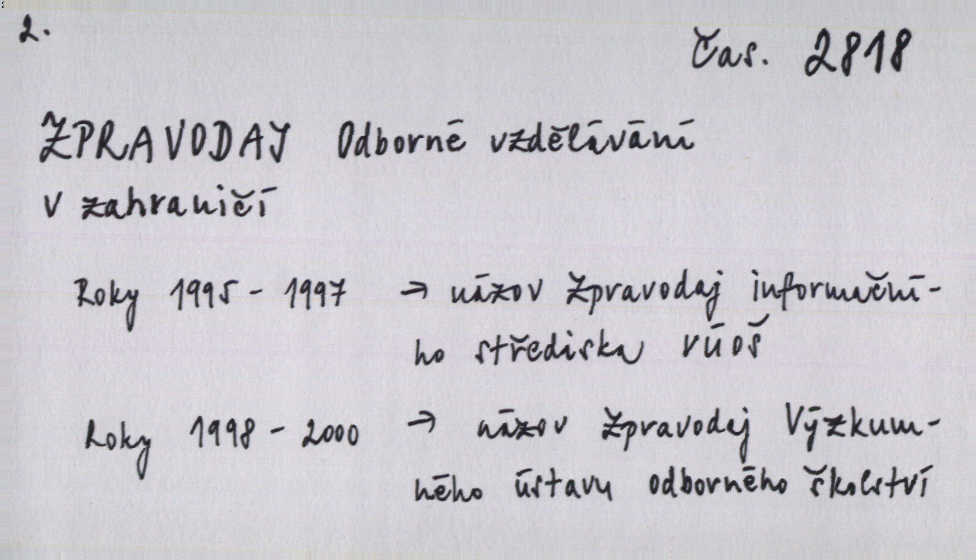 2.
Čas. 2818
ZPRAVODAJ Odborné vzdělávání
v zahraničí
Roky 1995 - 1997 → názov Zpravodaj informační-
ho střediska VÚOŠ
Roky 1998 - 2000 → názov Zpravodaj Výzkum-
ného ústavu odborného školství